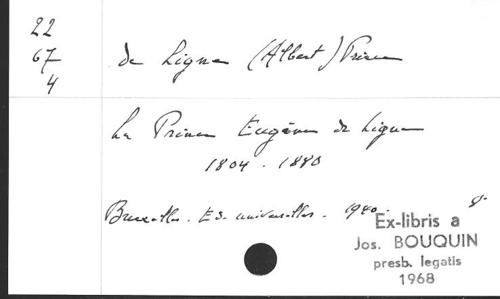 22
67
4
de Ligne (Albert) Prince
Le Prince Eugène de Ligne
1804 - 1880
Bruxelles. Ed. universelles. 1940. 8°
Ex-libris a
Jos. BOUQUIN
presb. legatis
1968